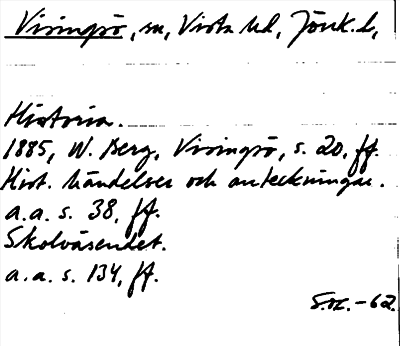 Visingsö, sn, Vista hd, Jönk. l,
Historia.
1885, W. Berg, Visingsö, s. 20. ff.
Hist. händelser och anteckningar.
a. a. s. 38, ff.
Skolväsendet.
a. a. s. 134, ff.
S.oc. -62.